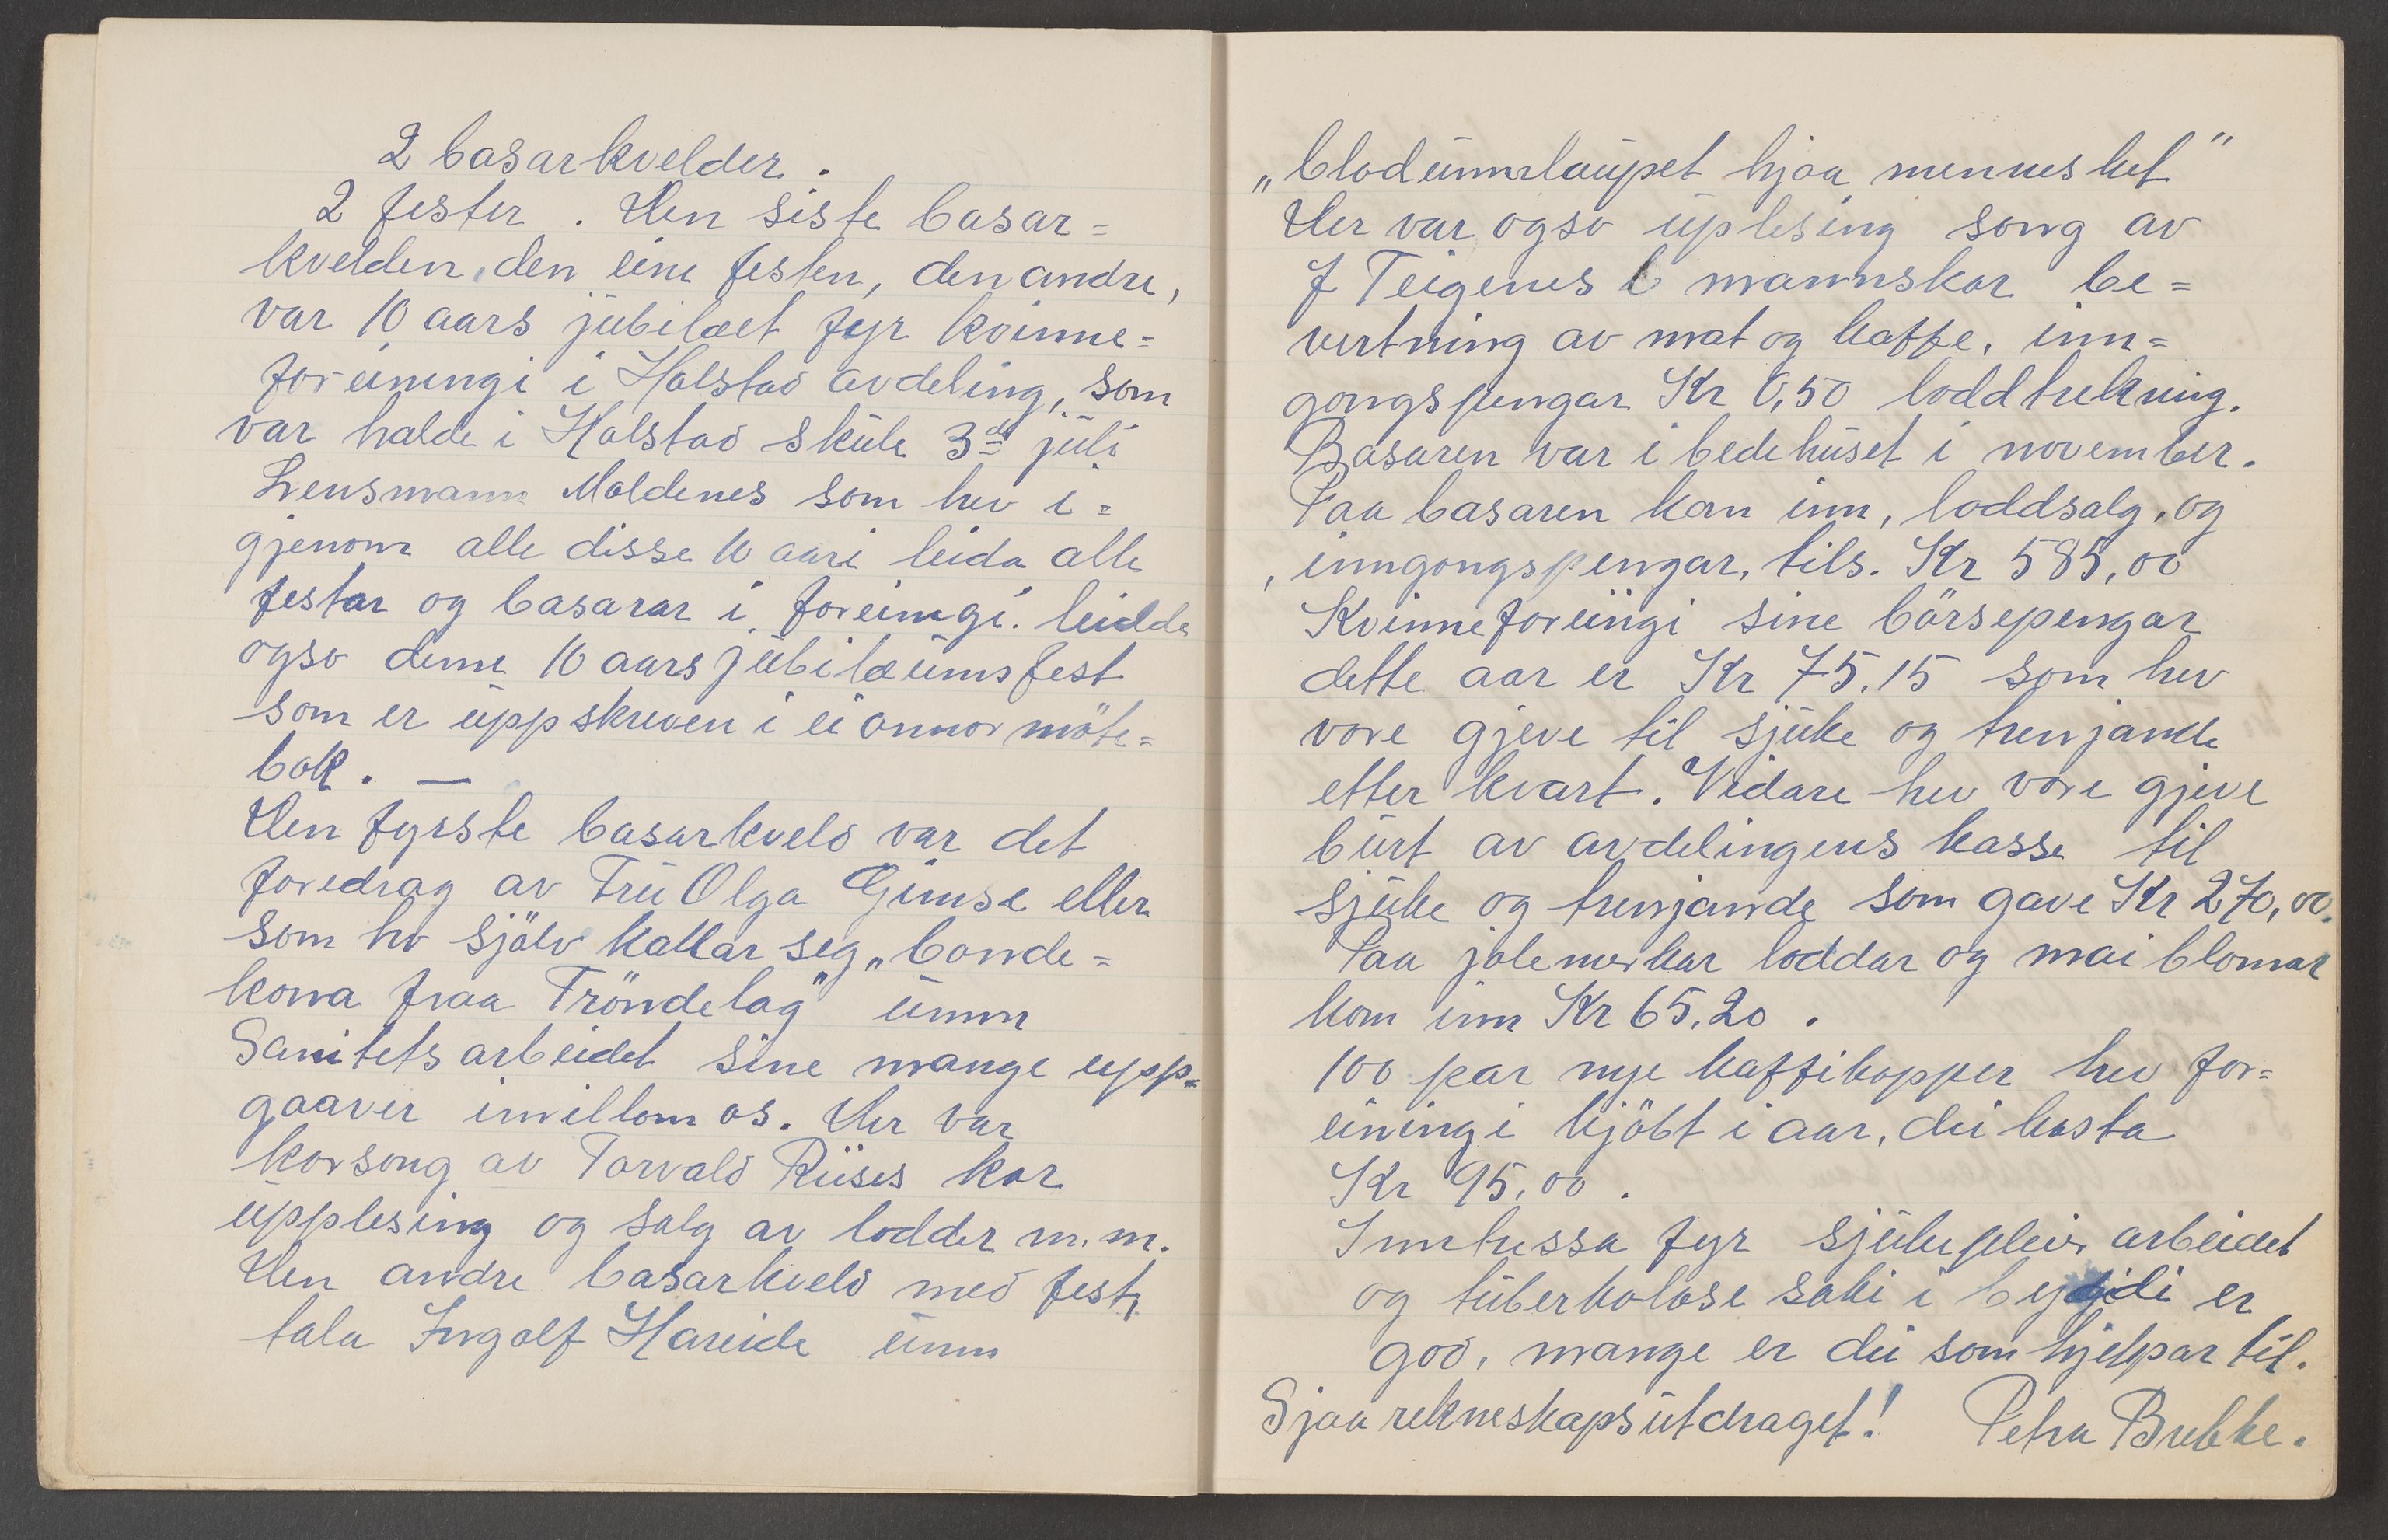 2 basarkvelder.
2 fester. Den siste basar=
kvelden, den eine festen, den andre,
var 10 aars jubilæet fyr kvinne=
foreiningi i Holstad avdeling, som
var halde i Holstad skule 3de juli
Lensmann Moldenes som hev i=
gjenom alle disse 10 aari leida alle
festar og basarar i foreiningi. leidde
ogso denne 10 aars jubilæumsfest
som er uppskreven i ei onnor möte=
bok. —
Den fyrste basarkveld var det
foredrag av Fru Olga Gimse eller
som ho sjölv kallar seg „bonde=
kona fraa Tröndelag" umm
Sanitetsarbeidet sine mange upp=
gaaver imillom os. Der var
korsong av Torvald Riises kor
upplesing og salg av lodder m.m.
Den andre basarkveld med fest,
tala Ingolf Hareide umm
„blodumlaupet hjaa mennesket"
Der var ogso uplesing song av
J Teigenes mannskor be=
vertning av mat og kaffe, inn=
gongspengar Kr 0,50 loddtrekning.
Basaren var i bedehuset i november.
Paa basaren kom inn, loddsalg, og
, inngongspengar, tils. Kr 585,00
Kvinneforeiingi sine börsepengar
dette aar er Kr 75,15 som hev
vore gjeve til sjuke og trengande
etter kvart. Vidare hev vore gjeve
burt av avdelingens kasse til
sjuke og trengjande som gave Kr 270,00.
Paa jolemerkar loddar og mai blomar
kom inn Kr 65,20.
100 par nye kaffikopper hev for=
einingi kjöbt i aar, dei kosta
Kr 95,00.
Inntressa fyr sjukepleie arbeidet
og tuberkolose saki i bygdi er
god, mange er dei som hjelpar til.
Sjaa rekneskapsutdraget! Petra Brekke.